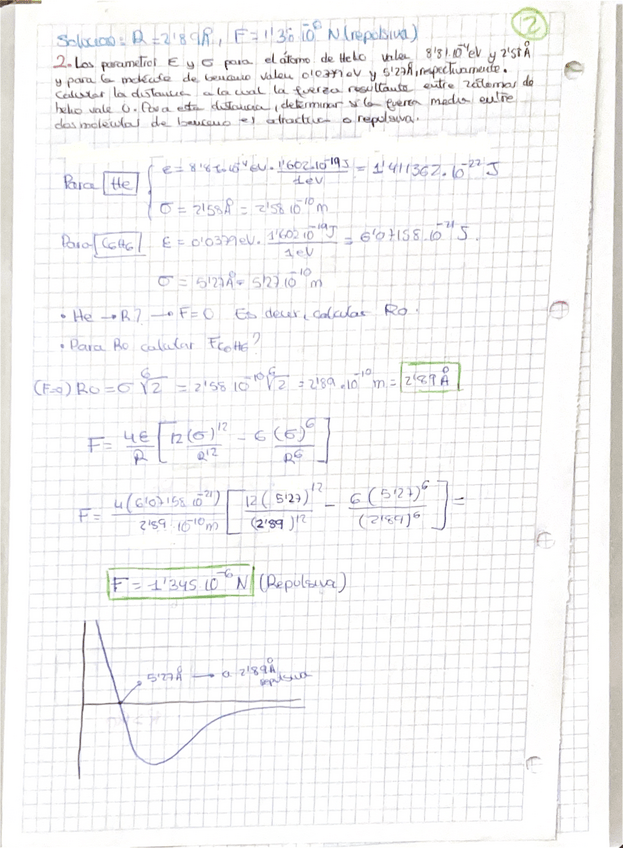 2
Solución: R = 2'89 Å, F = 1'36 10⁻⁶ N (repulsiva)
2. Los parametros ε y σ para el átomo de Helio valen 8'81·10⁻⁴ eV y 2'58 Å
y para la molécula de benceno valen 0'0379 eV y 5'27 Å, respectivamente.
Calcular la distancia a la cual la fuerza resultante entre 2 átomos de
helio vale 0. Para esta distancia, determinar si la fuerza media entre
dos moléculas de benceno es atractiva o repulsiva.
Para He { ε = 8'81·10⁻⁴ eV · 1'602·10⁻¹⁹ J / 1 eV = 1'411362·10⁻²² J
σ = 2'58 Å = 2'58 10⁻¹⁰ m
Para C6H6 ε = 0'0379 eV · 1'602 10⁻¹⁹ J / 1 eV = 6'07158·10⁻²¹ J.
σ = 5'27 Å = 5'27 10⁻¹⁰ m
• He → R? → F=0 Es decir, calcular Ro.
• Para Ro calcular F C6H6?
(F=0) Ro = σ ⁶√2 = 2'58 10⁻¹⁰ ⁶√2 = 2'89·10⁻¹⁰ m = 2'89 Å
F = 4ε/R [ 12(σ)¹²/R¹² − 6(σ)⁶/R⁶ ]
F = 4(6'07158 10⁻²¹)/2'89·10⁻¹⁰ m [ 12(5'27)¹²/(2'89)¹² − 6(5'27)⁶/(2'89)⁶ ] =
F = 1'345 10⁻⁶ N (Repulsiva)
5'27 Å → a 2'89 Å
repulsiva